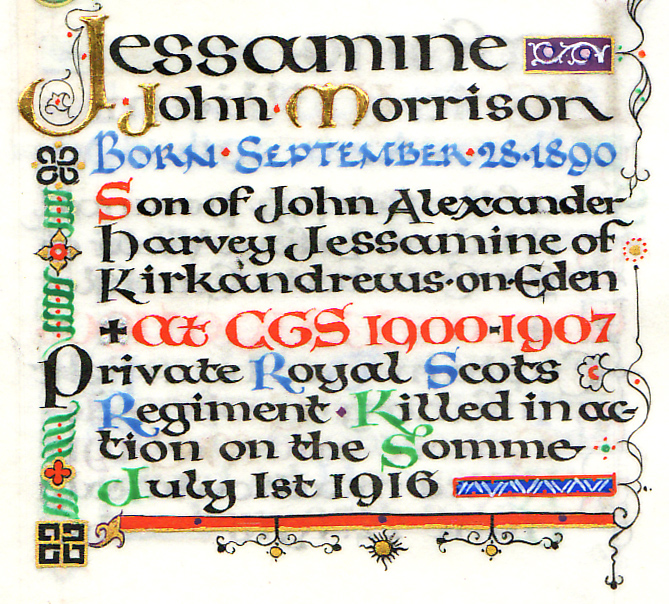 Jessamine
John · Morrison
Born · September · 28 · 1890
Son of John Alexander
Harvey Jessamine of
Kirkandrews·on·Eden
✚ at CGS 1900-1907
Private Royal Scots
Regiment · Killed in ac-
tion on the Somme
July 1st 1916